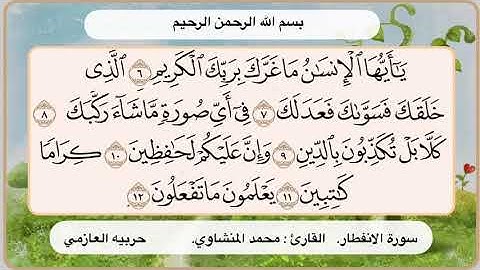 بسم الله الرحمن الرحيم
يَٰٓأَيُّهَا ٱلْإِنسَٰنُ مَا غَرَّكَ بِرَبِّكَ ٱلْكَرِيمِ ٦ ٱلَّذِى
خَلَقَكَ فَسَوَّىٰكَ فَعَدَلَكَ ٧ فِىٓ أَىِّ صُورَةٍ مَّا شَآءَ رَكَّبَكَ ٨
كَلَّا بَلْ تُكَذِّبُونَ بِٱلدِّينِ ٩ وَإِنَّ عَلَيْكُمْ لَحَٰفِظِينَ ١٠ كِرَامًا
كَٰتِبِينَ ١١ يَعْلَمُونَ مَا تَفْعَلُونَ ١٢
سورة الانفطار. القارئ : محمد المنشاوي. حربيه العازمي